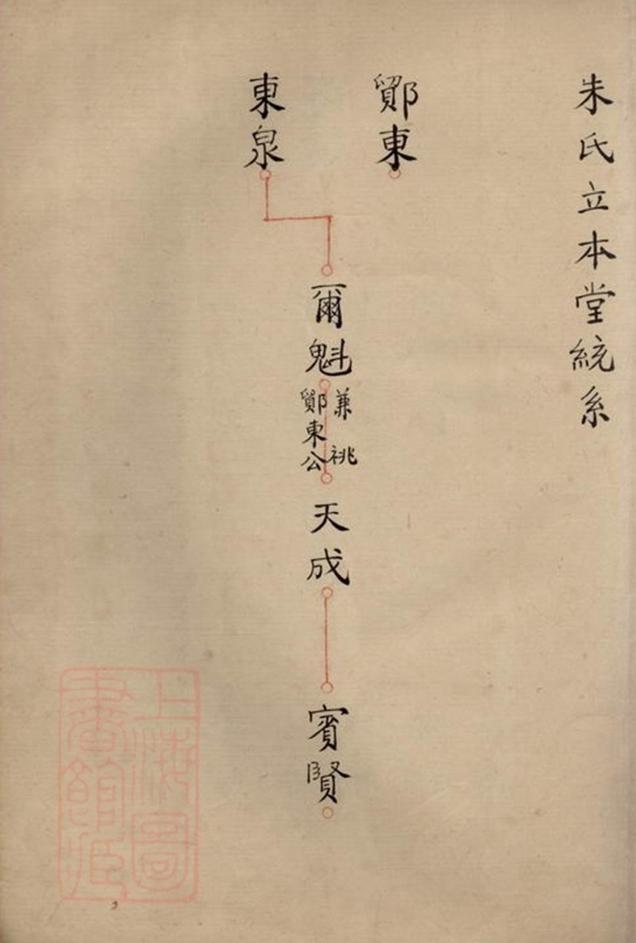 朱氏立本堂統系
鄮東
東泉
爾魁
兼祧
鄮東公
天成
賓賢
上海圖
書館藏